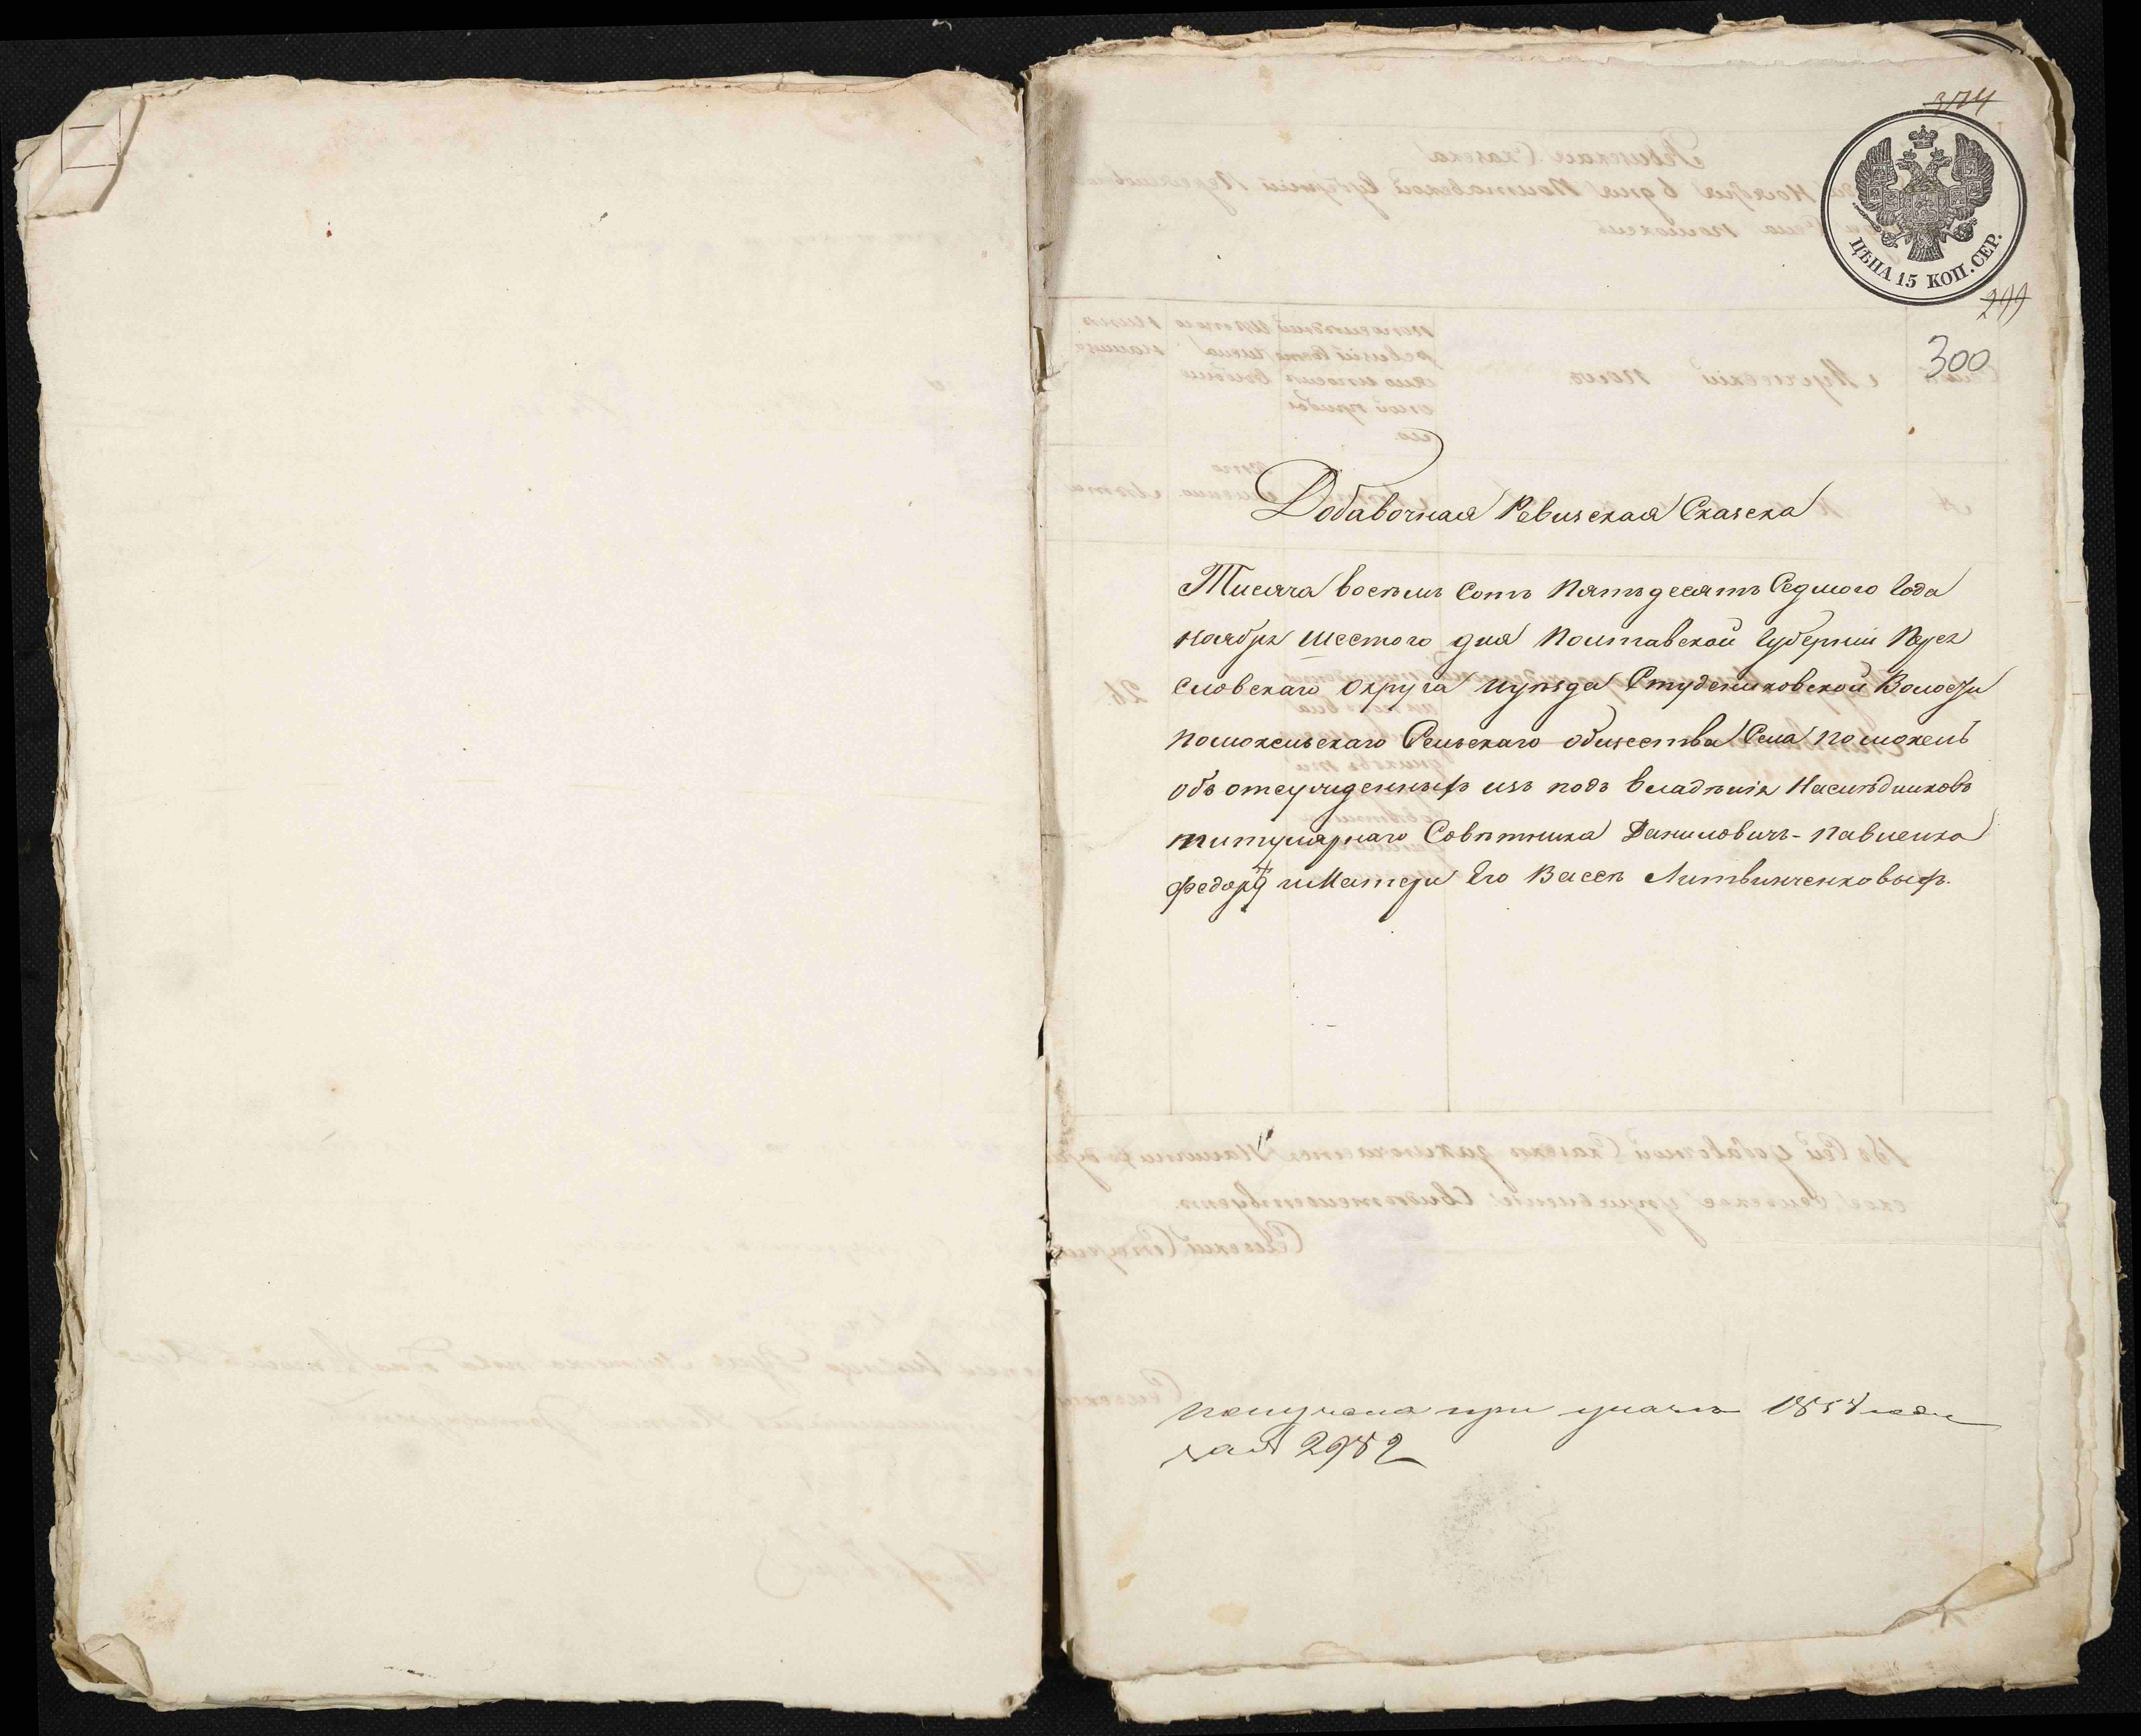 374
ЦѢНА 15 КОП. СЕР.
299
300
Добавочная Ревизская Сказска
Тисяча восѣмь Сотъ Пятьдесятъ Седмого Года
ноября шестого дня Полтавской Губерніи Перея
словскаго округа иуѣзда Студениковской Волости
помокельскаго Сельскаго общества Села помокель
объ отсужденныхъ изъ подъ владѣнія Наслѣдниковъ
титулярнаго Совѣтника Данилович-павленка
федорѣ иМатери Его Вассѣ Литвинченковыхъ.
получена при указѣ 1858 года
2982